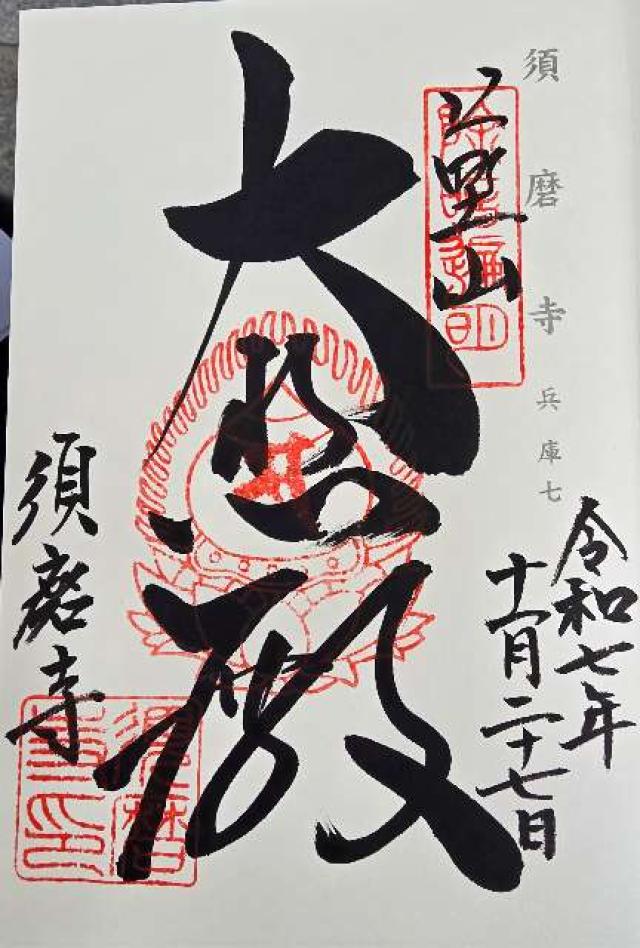 須磨寺 兵庫七
上野山
除暗遍明
令和七年
十一月二十七日
大悲殿
須磨寺
須磨寺印